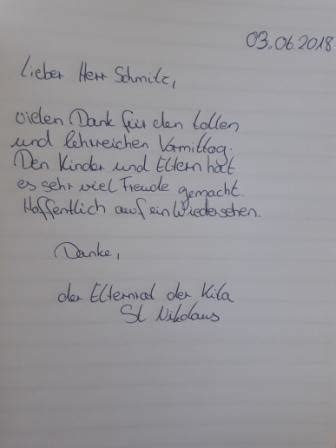 03.06.2018
Lieber Herr Schmitz,
vielen Dank für den tollen
und lehrreichen Vormittag.
Den Kinder und Eltern hat
es sehr viel Freude gemacht.
Hoffentlich auf ein Wiedersehen.
Danke,
der Elternrat der Kita
St Nikolaus